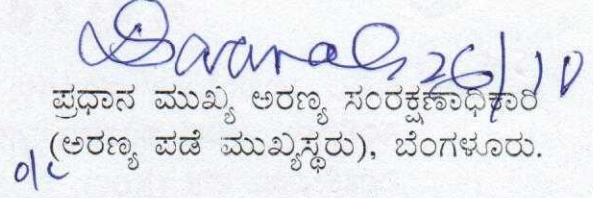 26/10
ಪ್ರಧಾನ ಮುಖ್ಯ ಅರಣ್ಯ ಸಂರಕ್ಷಣಾಧಿಕಾರಿ
(ಅರಣ್ಯ ಪಡೆ ಮುಖ್ಯಸ್ಥರು), ಬೆಂಗಳೂರು.
o/c